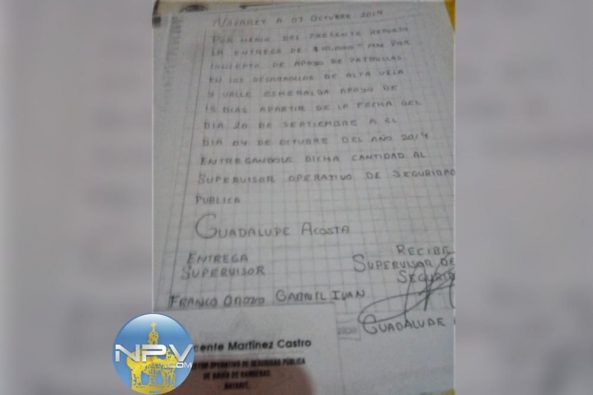 NAYARIT A 07 OCTUBRE 2014
POR MEDIO DEL PRESENTE REPORTO
LA ENTREGA DE $10,000 MN POR
CONCEPTO DE APOYO DE PATRULLAS
EN LOS DESARROLLOS DE ALTA VELA
Y VALLE ESMERALDA APOYO DE
15 DIAS APARTIR DE LA FECHA DEL
DIA 20 DE SEPTIEMBRE A EL
DIA 04 DE OCTUBRE DEL AÑO 2014
ENTREGANDOLE DICHA CANTIDAD AL
SUPERVISOR OPERATIVO DE SEGURIDAD
PUBLICA
GUADALUPE ACOSTA
ENTREGA
SUPERVISOR
FRANCO OROZCO GABRIEL IVAN
RECIBE
SUPERVISOR DE
SEGURID
GUADALUPE
cente Martínez Castro
CTOR OPERATIVO DE SEGURIDAD PÚBLICA
DE BAHÍA DE BANDERAS
NAYARIT.
NPV
.COM